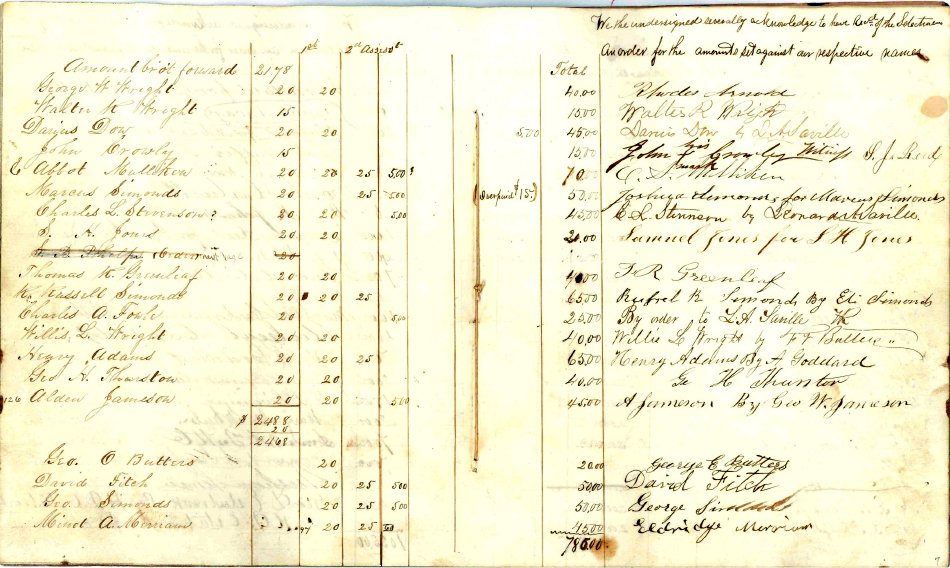 We the undersigned severally acknowledge to have Recd. of the Selectmen
An order for the amounts set against our respective names
1st 2d Assesst
Amount brot forward 2178 Total
George W Wright 20 20 40,00 Rhodes Arnold
Walter R Wright 15 15,00 Walter R Wright
Darius Dow 20 20 5,00 45,00 Darius Dow by L A Saville
John Crowly 15 15,00 John his mark Crowley Witness S. J. Reed
C Abbot Milliken 20 20 25 5,00 ? 70 C. A. Milliken
Marcus Simonds 20 25 5,00 Overpaid $15 50,00 Joshua Simonds for Marcus Simonds
Charles L Stevenson ? 20 20 5,00 45,00 C L Stevenson by Leonard A Saville
S. H. Jones 20 20 20,00 Samuel Jones for S H Jones
Phelps Order not 20
Thomas R Greenleaf 20 20 40,00 T R Greenleaf
R Russell Simonds 20 20 25 65,00 Rufsel R Simonds By Eli Simonds
Charles A. Fowle 20 5,00 25,00 By order to L. A. Saville
Willis L. Wright 20 20 40,00 Willis L Wright by F F Butters
Henry Adams 20 20 25 65,00 Henry Adams By A Goddard
Geo H. Thurston 20 20 40,00 Ge H Thurston
126 Alden Jameson 20 20 5,00 45,00 A Jameson By Geo W. Jameson
$ 2488
20
2468
Geo. C Butters 20 20,00 George C Butters
David Fitch 20 25 5,00 50,00 David Fitch
Geo. Simonds 20 25 5,00 50,00 George Simonds
Minot A. Merriam 20 25 45,00 Eldridge Merriam
785.00